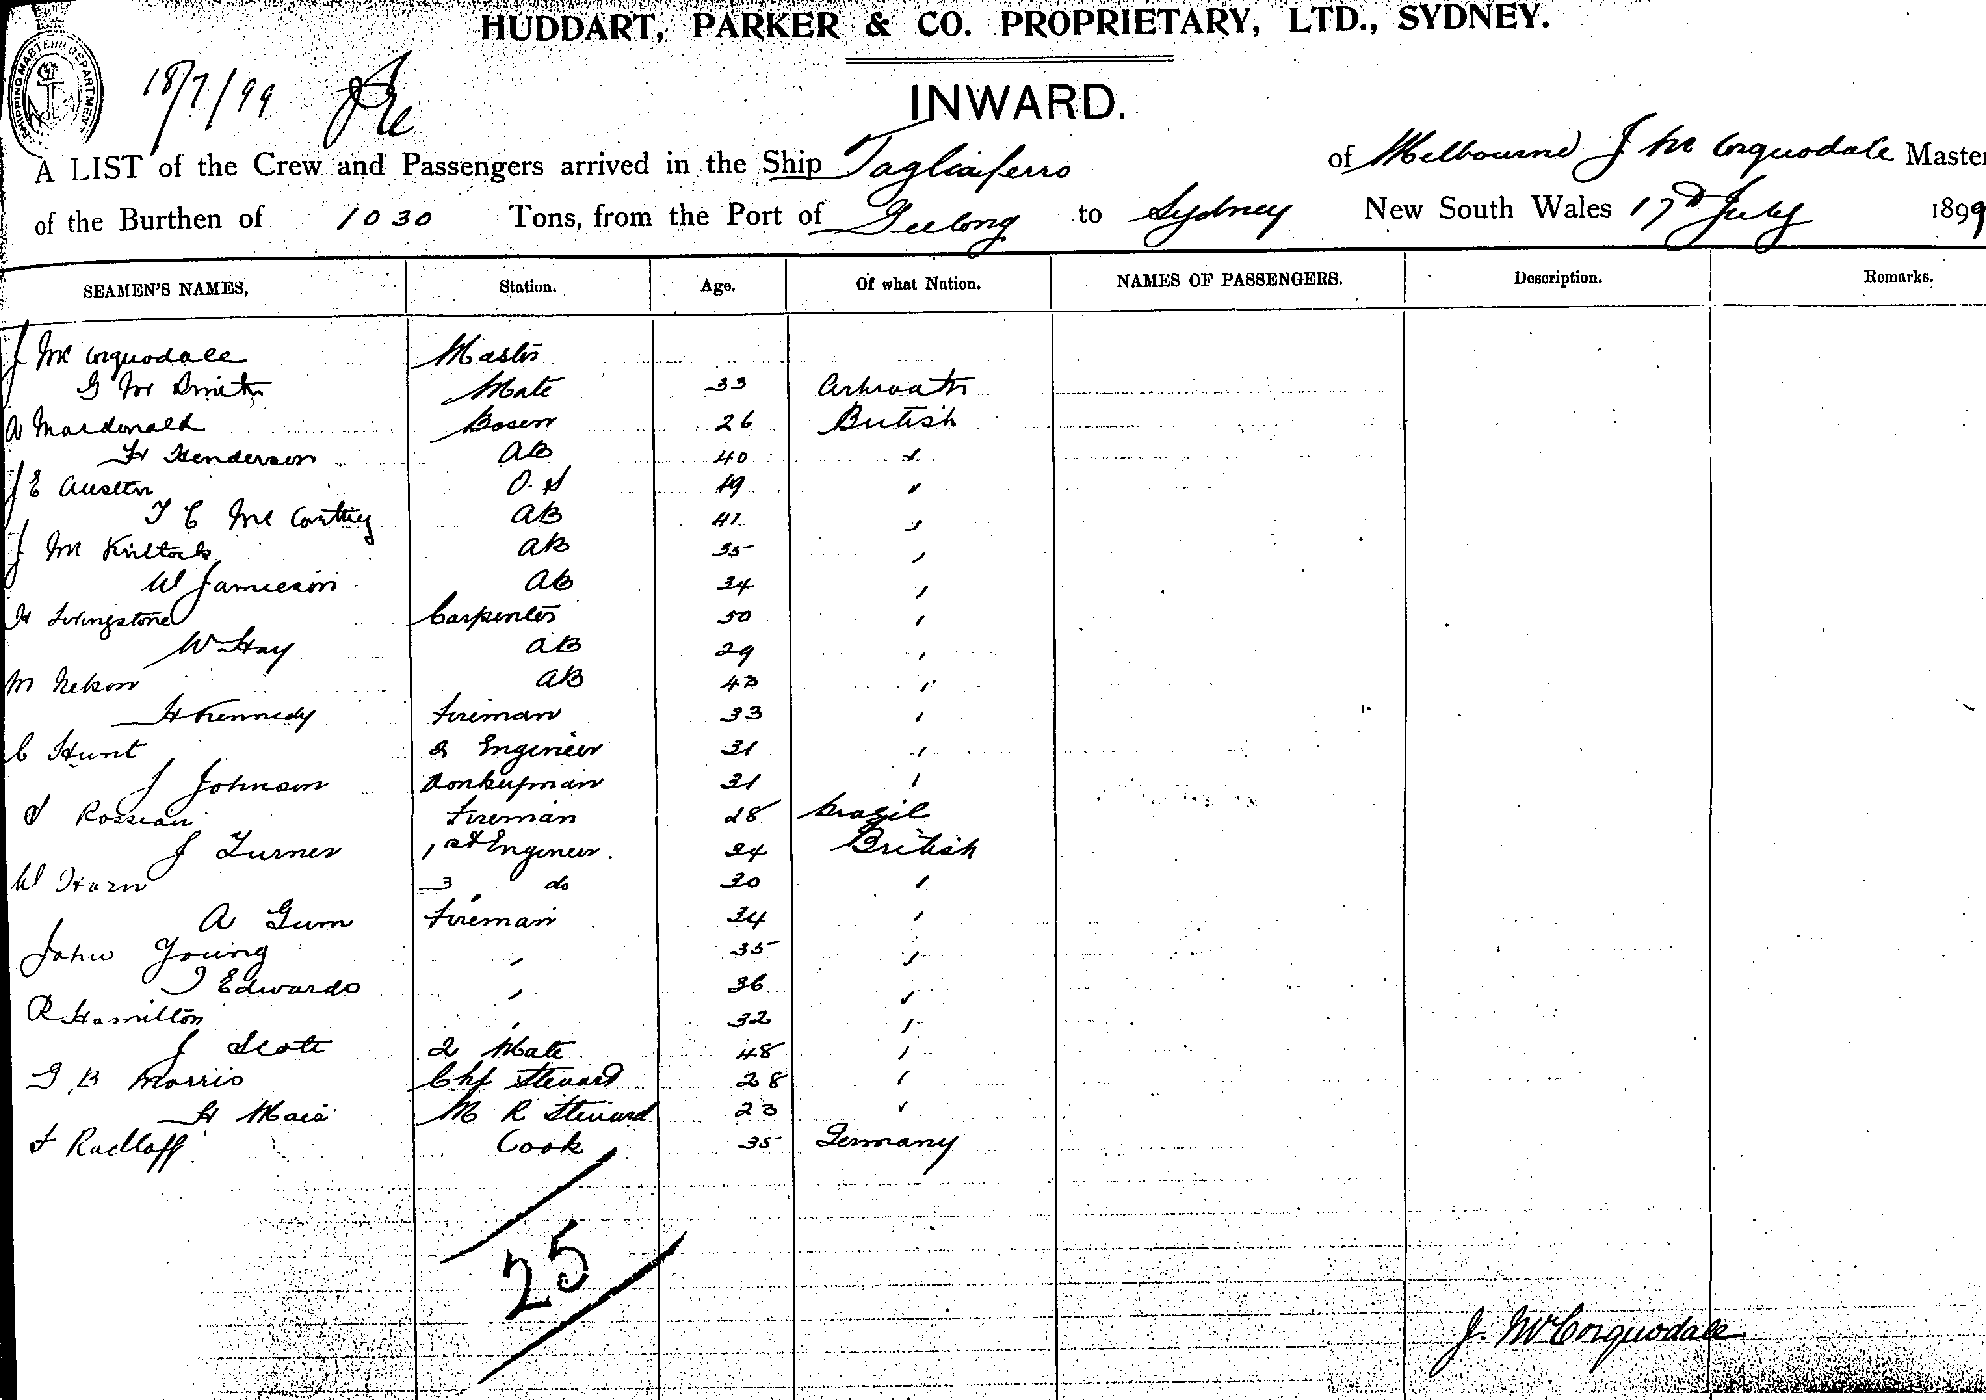 HUDDART, PARKER & CO. PROPRIETARY, LTD., SYDNEY.
SHIPPING MASTER'S DEPARTMENT
18/7/99
INWARD.
A LIST of the Crew and Passengers arrived in the Ship Tagliaferro of Melbourne J Mc Corquodale Master
of the Burthen of 1030 Tons, from the Port of Geelong to Sydney New South Wales 17th July 1899
SEAMEN'S NAMES, Station. Age. Of what Nation. NAMES OF PASSENGERS. Description. Remarks.
J Mc Corquodale Master
G Mc Smith Mate 33
A Macdonald Bosen 26 British
Henderson AB 40 "
J E Austen O.S 19 "
T C Mc Carthy AB 41 "
J Mc AB 35 "
W Jamieson AB 34 "
H Livingstone Carpenter 50 "
W Hay AB 29 "
M Nelson AB 43 "
H Kennedy Fireman 33 "
C Hunt 2 Engineer 31 "
J Johnson Donkeyman 31 "
Fireman 28 Brazil
J Turner 1st Engineer 34 British
W Horn 3 " do 30 "
A Gum Fireman 34 "
John Young " 35 "
J Edwards " 36 "
R Hamilton " 32 "
J Scott 2 Mate 48 "
G. B Morris Chf Steward 28 "
H Mais M R Steward 23 "
F Radloff Cook 35 Germany
25
J. McCorquodale